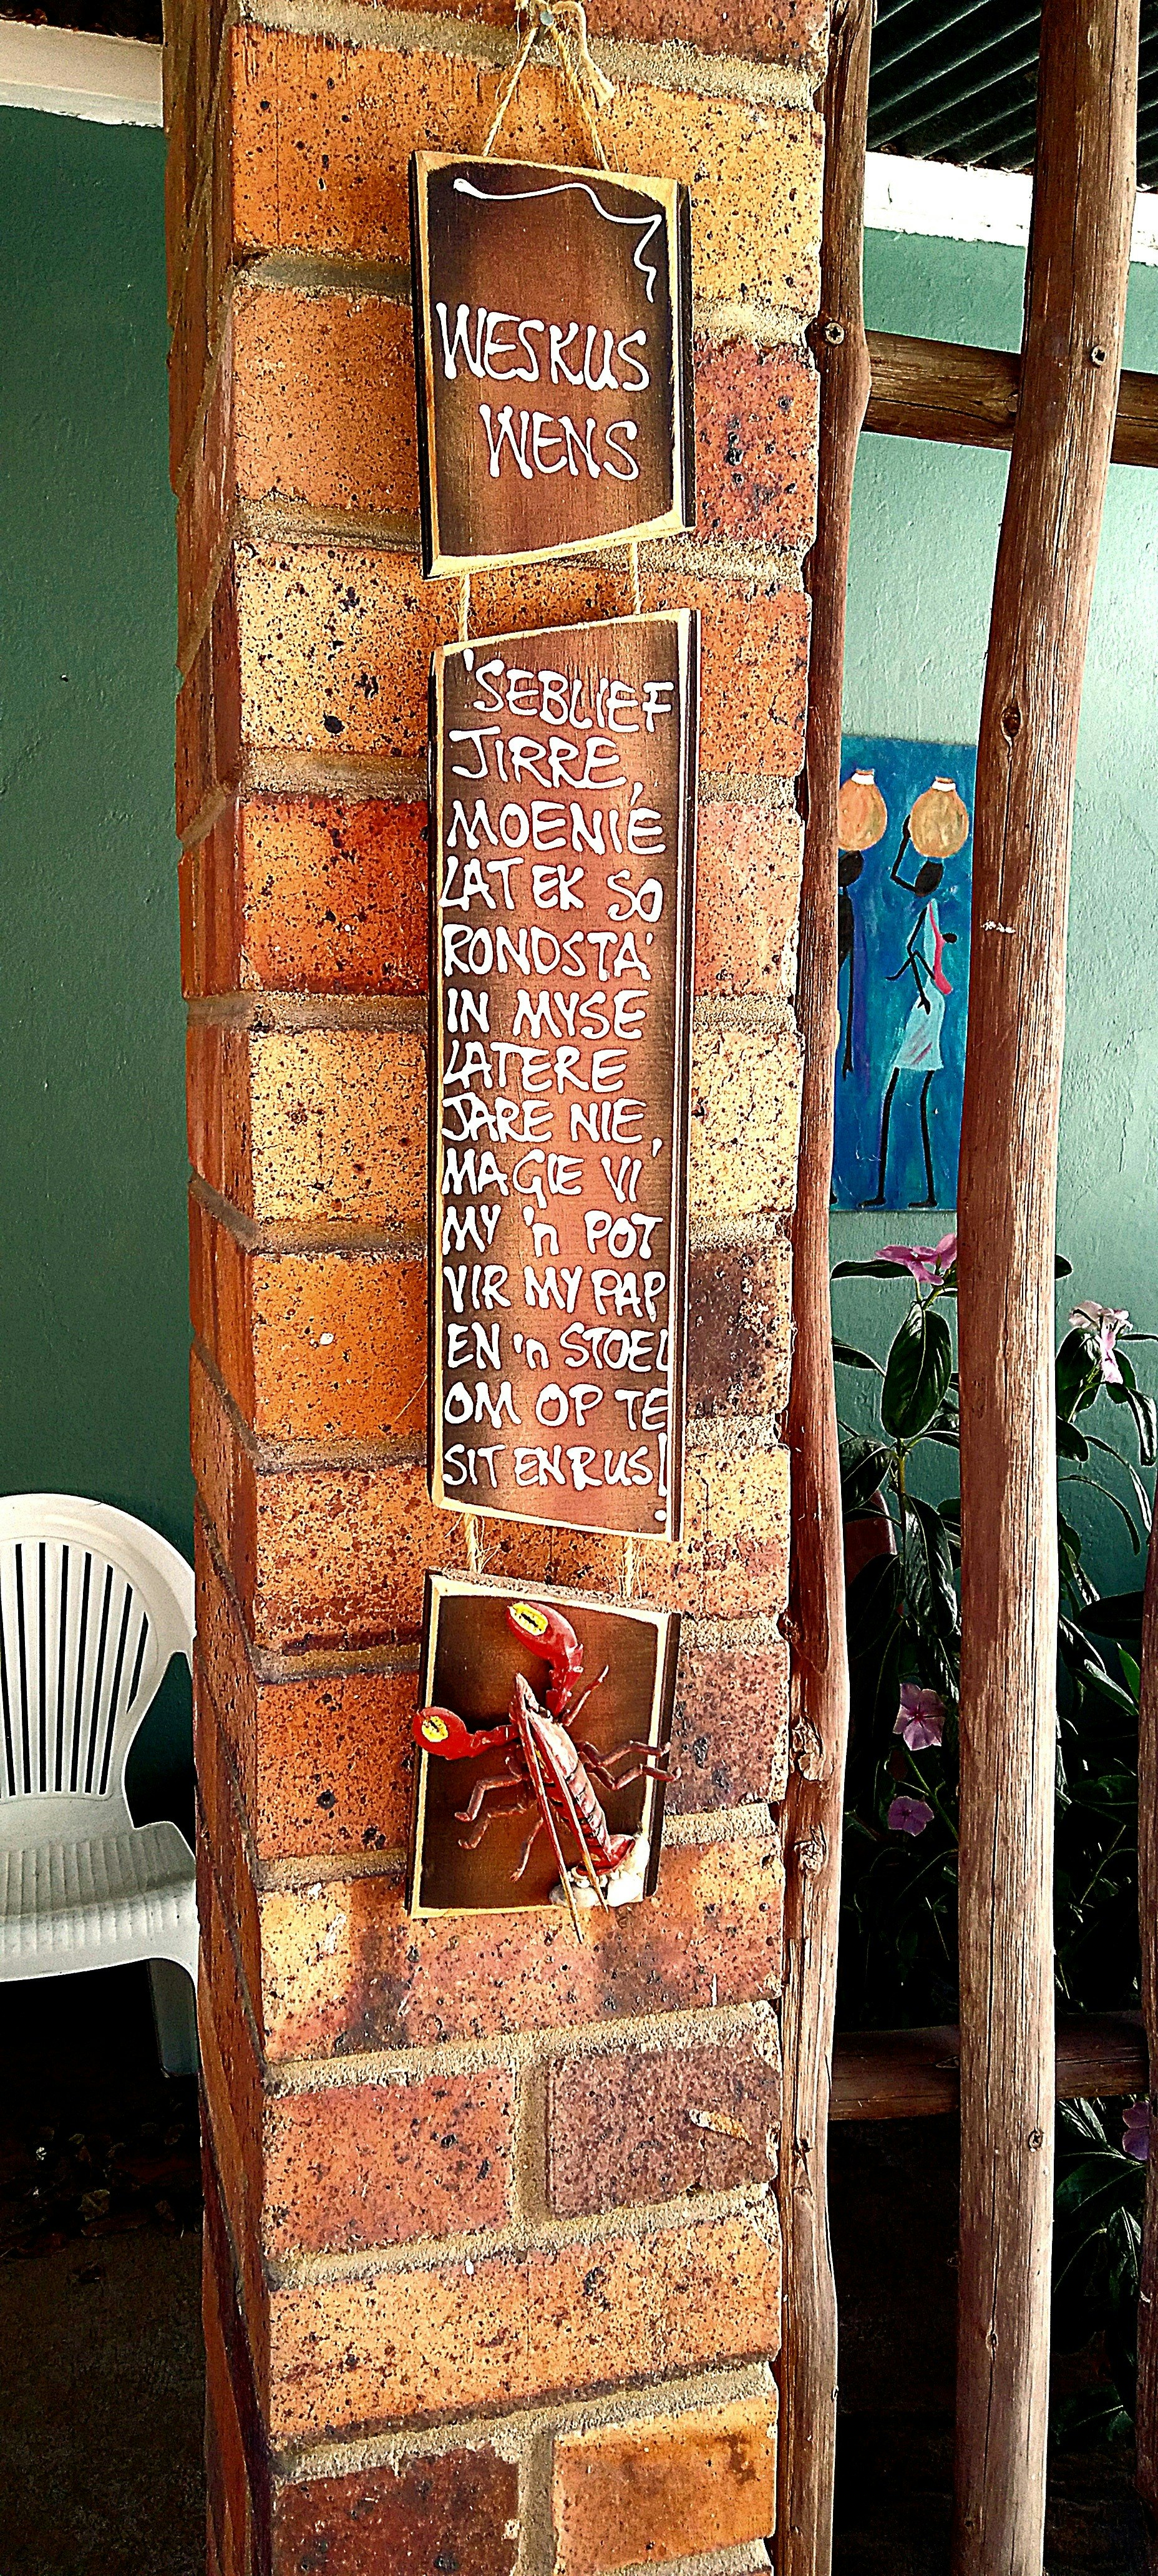 WESKUS
WENS
'SEBLIEF
JIRRE,
MOENIE
LAT EK SO
RONDSTA'
IN MYSE
LATERE
JARE NIE,
MAGIE VI'
MY 'n POT
VIR MY PAP
EN 'n STOEL
OM OP TE
SIT EN RUS!